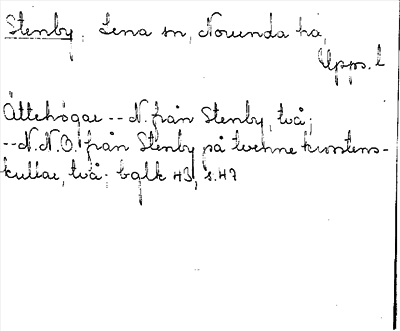 Stenby, Lena sn, Norunda hd,
Upps. l
Ättehögar -- N. från Stenby, två;
-- N.N.O. från Stenby på tvenne krosstens-
kullar, två; bglk 43, s. 47